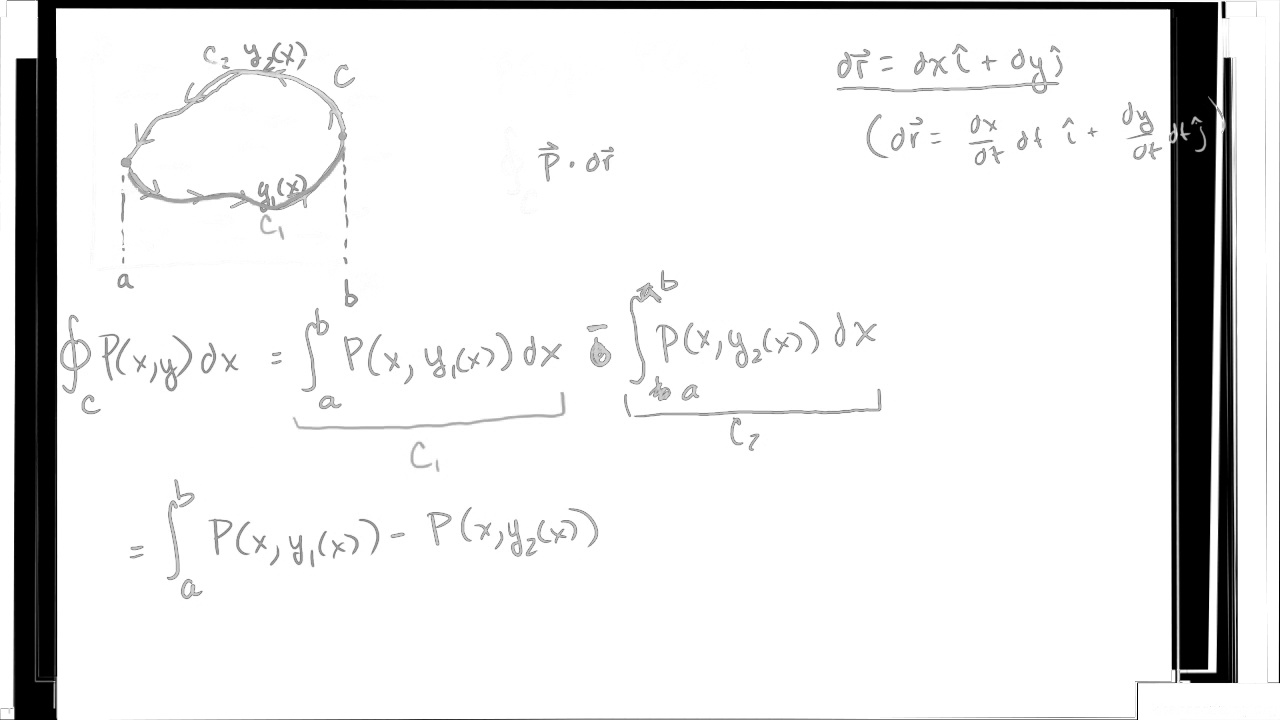 C₂ y₂(x)
C
y₁(x)
C₁
a
b
P⃗ · dr⃗
dr⃗ = dx î + dy ĵ
(dr⃗ = dx/dt dt î + dy/dt dt ĵ)
∮_C P(x,y) dx = ∫_a^b P(x, y₁(x)) dx - ∫_a^b P(x, y₂(x)) dx
C₁ C₂
= ∫_a^b P(x, y₁(x)) - P(x, y₂(x))